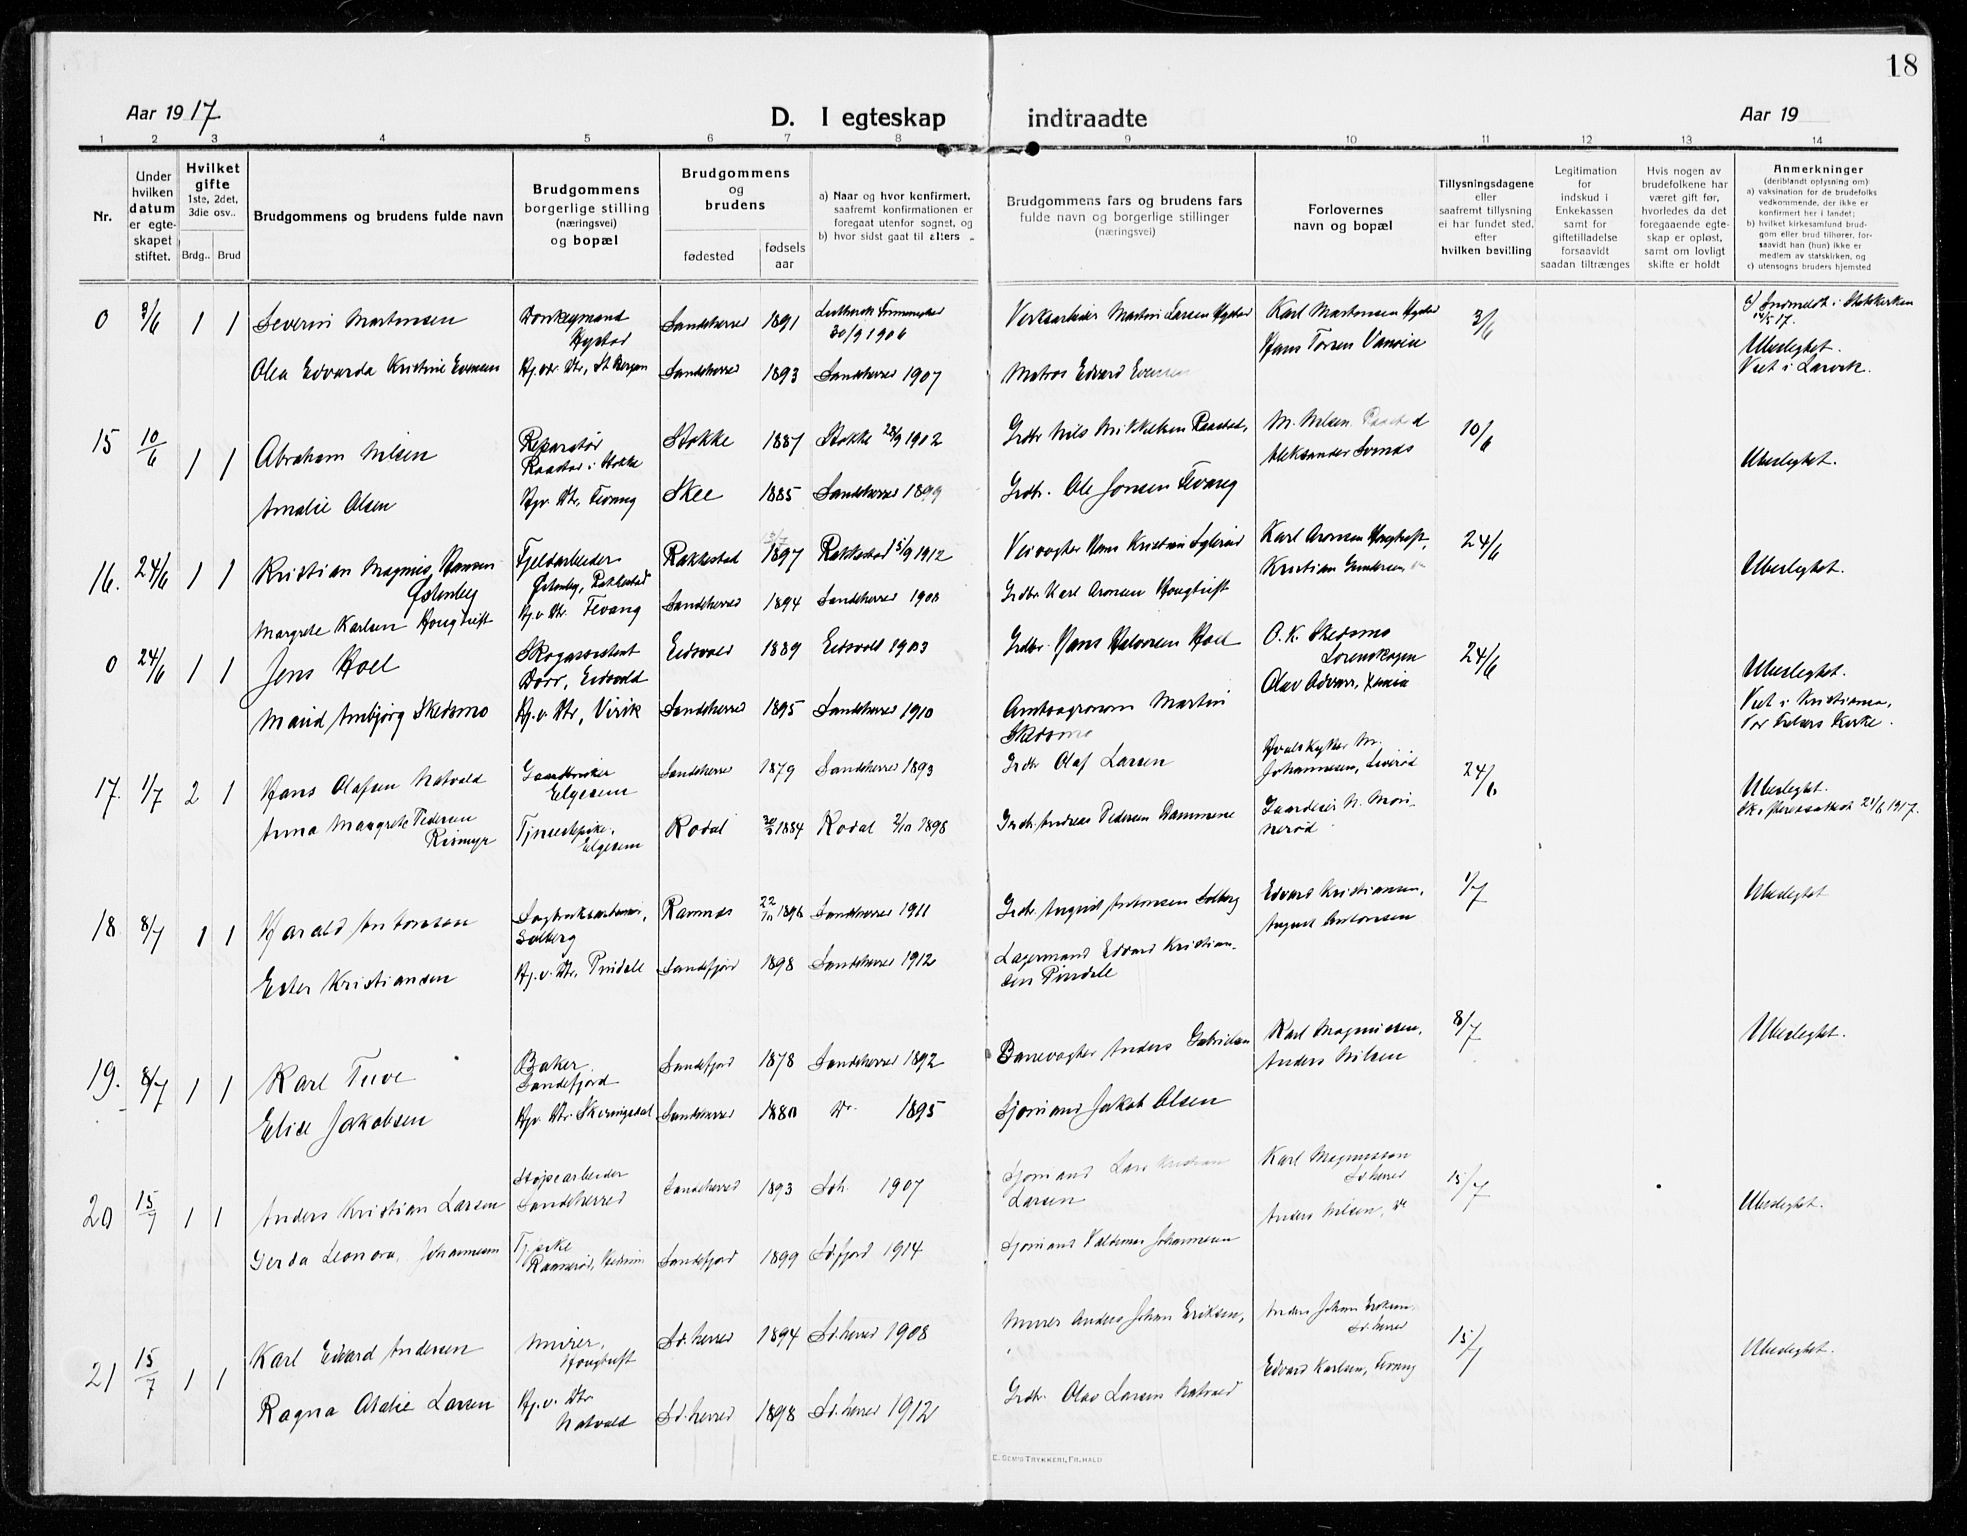 18
Aar 1917
D. I egteskap indtraadte
Aar 19
1 2 3 4 5 6 7 8 9 10 11 12 13 14
Nr.
Under
hvilken
datum
er egte-
skapet
stiftet.
Hvilket
gifte
1ste, 2det,
3die osv..
Brdg.. Brud
Brudgommens og brudens fulde navn
Brudgommens
borgerlige stilling
(næringsvei)
og bopæl
Brudgommens
og
brudens
fødested
fødsels
aar
a) Naar og hvor konfirmert,
saafremt konfirmationen er
foregaat utenfor sognet, og
b) hvor sidst gaat til alters
Brudgommens fars og brudens fars
fulde navn og borgerlige stillinger
(næringsvei)
Forlovernes
navn og bopæl
Tillysningsdagene
eller
saafremt tillysning
ei har fundet sted,
efter
hvilken bevilling
Legitimation
for
indskud i
Enkekassen
samt for
giftetilladelse
forsaavidt
saadan tiltrænges
Hvis nogen av
brudefolkene har
været gift før,
hvorledes da det
foregaaende egte-
skap er opløst,
samt om lovligt
skifte er holdt
Anmerkninger
(deriblandt oplysning om)
a) vaksination for de brudefolks
vedkommende, der ikke er
konfirmert her i landet;
b) hvilket kirkesamfund brud-
gom eller brud tilhører, for-
saavidt han (hun) ikke er
medlem av statskirken, og
c) utensogns bruders hjemsted
0 3/6 1 1 Severin Martinsen
Donkeymand
Hystad
Sandeherred 1891
30/9 1906
Martin Larsen Hystad
Karl Martinsen Hystad
3/6
Indmeldt i Statskirken
17.
Ubeslegtet.
Viet i Larvik.
Olea Edvarda Kristine Evensen
Sandeherred 1893 Sandeherred 1907
Matros Edvard Evensen
Hans Torsen
15 10/6 1 1 Abraham Nilsen
Reparatør
Raastad i Stokke
Stokke 1887 Stokke 28/9 1902
Grdbr. Nils Mikkelsen Raastad,
M. Nilsen Raastad
Aleksander
10/6
Ubeslegtet.
Amalie Olsen
Hjv. Dtr, Fevang
Skee 1885 Sandeherred 1899
Grdbr. Ole Jonsen Fevang
16. 24/6 1 1 Kristian Magnus Hansen
Østenby
Fjeldarbeider
Østenby, Rakkestad
Rakkestad 1897 Rakkestad 15/9 1912
Veivogter Hans Kristian
Karl Aronsen Hougtuft,
Kristian Gundersen
24/6
Ubeslegtet.
Margrete Karlsen Hougtuft
Hj.v. Dtr. Fevang
Sandeherred 1894 Sandeherred 1908
Grdbr. Karl Aronsen Hougtuft
0 24/6 1 1 Jens Hoel
Skogassistent
Dorr, Eidsvold
Eidsvold 1889 Eidsvold 1903
Grdbr. Hans Halvorsen Hoel
O. K. Skedsmo
Lørenskogen
24/6
Ubeslegtet.
Viet i Kristiania,
Vor Frelsers Kirke.
Maud Ambjørg Skedsmo
Hj.v. Dtr, Virik
Sandeherred 1895 Sandeherred 1910
Amtsagronom Martin
Skedsmo
17. 1/7 2 1 Hans Olafsen Natvald
Gaardbruker
Elgesem
Sandeherred 1879 Sandeherred 1893
Grdbr Olaf Larsen
Hvalskytter M.
Johannessen, Liverød
24/6
Ubeslegtet.
Skifteattest 21/6 1917.
Anna Margrete Pedersen
Rismyr
Tjenestepike,
Elgesem
Kodal 1884 Kodal 2/10 1898
Grdbr. Andreas Pedersen Dammene
Gaardeier N. Mari-
nerød
18. 8/7 1 1 Harald Antonsen
Sagbruksarbeider,
Solberg
Ramnes 22/10 1896 Sandeherred 1911
Grdbr. Antonsen Solberg
Edvard Kristiansen,
August Antonsen
1/7
Ubeslegtet
Ester Kristiansen
Hj.v. Dtr, Pindsle
Sandefjord 1898 Sandeherred 1912
Lagermand Edvard Kristian-
sen Pindsle
19. 8/7 1 1 Karl Tuve
Baker
Sandefjord
Sandefjord 1878 Sandeherred 1892
Banevogter Anders Gabrielsen
Karl Magnussen,
Anders Nilsen
8/7
Ubeslegtet.
Elise Jakobsen
Hjv. Dtr. Skiringsdal
Sandeherred 1880 Do. 1895
Sjømand Jakob Olsen
20 15/7 1 1 Anders Kristian Larsen
Støpearbeider
Sandeherred
Sandeherred 1893 Sdh. 1907
Sjømand Lars Kristian
Larsen
Karl Magnussen
Sdherred
Anders Nilsen, Do
15/7
Ubeslegtet.
Gerda Leonora, Johannessen
Sandefjord 1899 Sdfjord 1914
Sjømand Valdemar Johannessen
21 15/7 1 1 Karl Edvard Andersen
Murer,
Hougtuft
Sd.herred 1894 Sd.herred 1908
Murer Anders Johan Eriksen,
Anders Johan Eriksen,
Sd.herred
15/7
Ubeslegtet.
Ragna Atalie Larsen
Hj.v. Dtr
Natvald
Sd.herred 1898 Sd.herred 1912
Grdbr. Olav Larsen Natvald
Edvard Karlsen, Fevang
E. SEMS TRYKKERI, FR.HALD